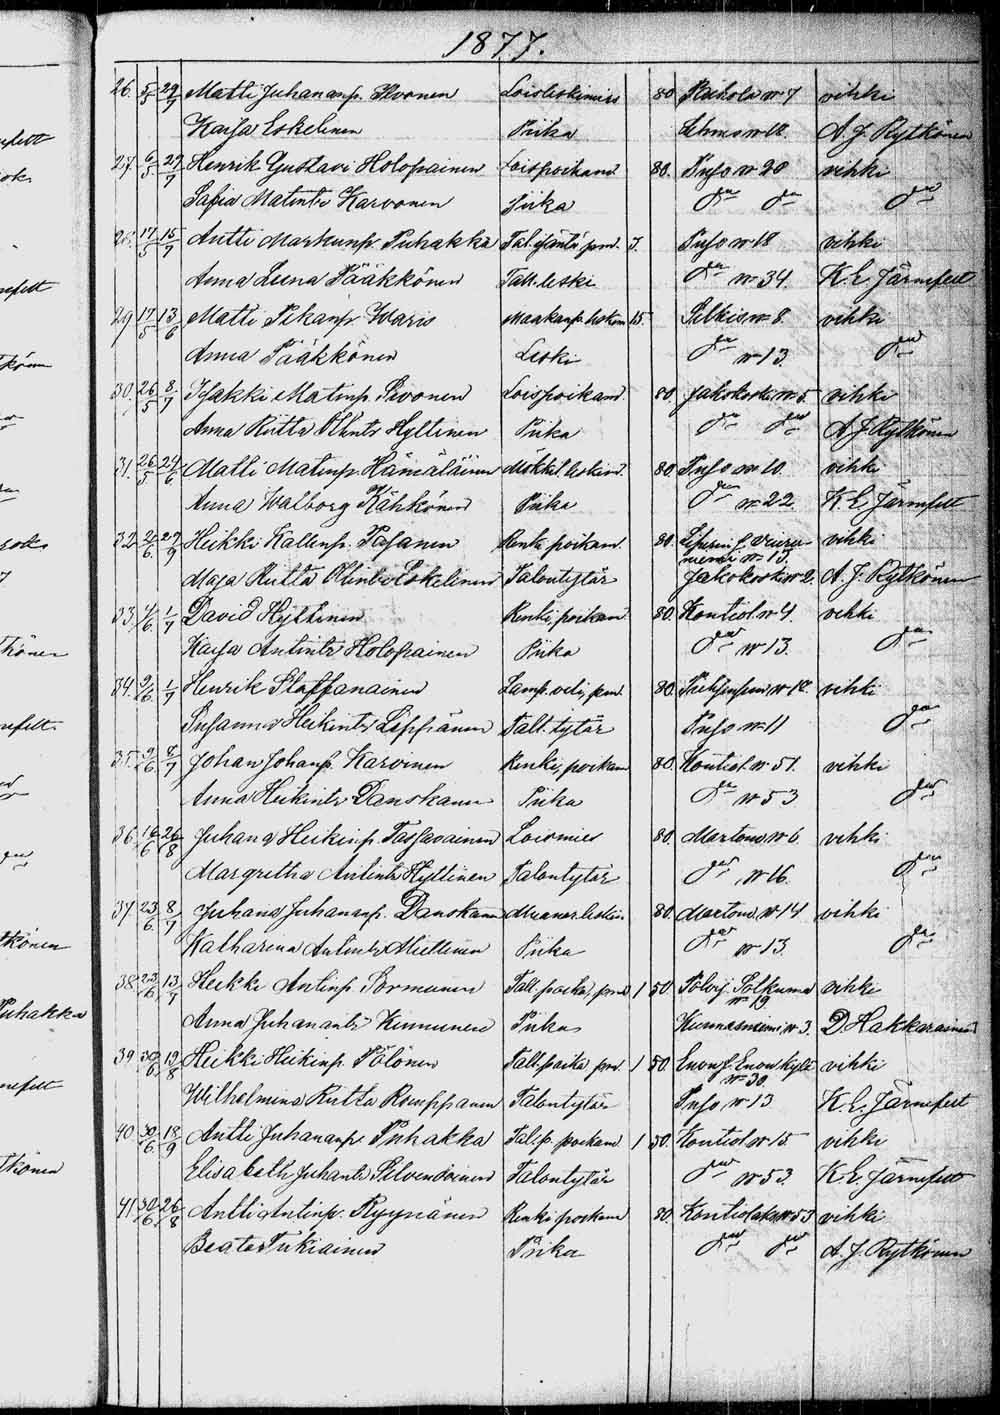 1877.
26. 5/5 29/7 Matti Juhananp. Ilvonen Loisleskimies 80 Rahola N 7 vihki
Kaisa Eskelinen Piika Lehmo N 12. A. J. Rytkönen
27. 6/5 29/7 Henrik Gustavi Holopainen Loispoikam 80. Puso N 20 vihki
Sofia Matintr Karvonen Piika do do do
28. 17/5 15/7 Antti Markunp. Puhakka Tal. isäntä pm. 5. Puso N 18 vihki
Anna Leena Pääkkönen Tall. leski do N 34. K. E. Järnefelt
29 17/5 13/6 Matti Pekanp. Waris Maakaup. leskm 15. Selkie N 8. vihki
Anna Pääkkönen Leski do N 13. do
30. 26/5 8/7 Jaakki Matinp. Sivonen Loispoikam 80. Jakokoski N 5 vihki
Anna Riitta Hyttinen Piika do do A J Rytkönen
31. 26/5 24/6 Matti Matinp. Hämäläinen Mökkil. leskim. 80. Puso N 10. vihki
Anna Walborg Kähkönen Piika do N 22. K. E. Järnefelt
32 2/6 29/9 Heikki Kallenp. Pasanen Renki poikam. 80. Liperin N 13 vihki
Maja Riitta Olintr Eskelinen Talontytär Jakokoski N 2. A. J. Rytkönen
33. 4/6 1/7 David Hyttinen Renki poikam 80. Kontiol N 4. vihki
Kaisa Antintr Holopainen Piika do N 13. do
34. 9/6 1/7 Henrik Staffanainen Lamp. veli, pm. 80. N 12. vihki
Susanna Heikintr Lippänen Tall. tytär Puso N 11 do
35. 9/6 8/7 Johan Johanp. Karvinen Renki, poikam 80. Kontiol. N 51. vihki
Anna Heikintr Danskanen Piika do N 53 do
36. 16/6 26/8 Juhana Heikinp. Tassavainen Loismies 80. Martono N 6. vihki
Margretha Antintr Hyttinen Talontytär do N 16. do
37. 23/6. 8/7 Juhana Juhananp. Danskanen 80. Martono N 14 vihki
Katharina Antintr Miettinen Piika do N 13. do
38. 23/6 13/7 Heikki Antinp. Sormunen Tall. poika, pm 1 50. Polvij. Solkuma N 19 vihki
Anna Juhanantr Kinnunen Piika Kunnasniemi N 3. D Hakkarainen
39. 30/6 19/8 Heikki Heikinp. Pölönen Tall. poika pm. 1 50. Enon s. Enonkylä N 30 vihki
Wilhelmina Riitta Romppanen Talontytär Puso N 13 K. E. Järnefelt
40 30/6. 18/9 Antti Juhananp. Puhakka Tal. p. poikam 1 50. Kontiol N 15 vihki
Elisabeth Juhantr Silvendoinen Talontytär do N 53. K. E. Järnefelt
41 30/6 26/8 Antti Antinp. Ryynänen Renki poikam 80. Kontiolaks N 53 vihki
Beata Turkiainen Piika do do A. J. Rytkönen